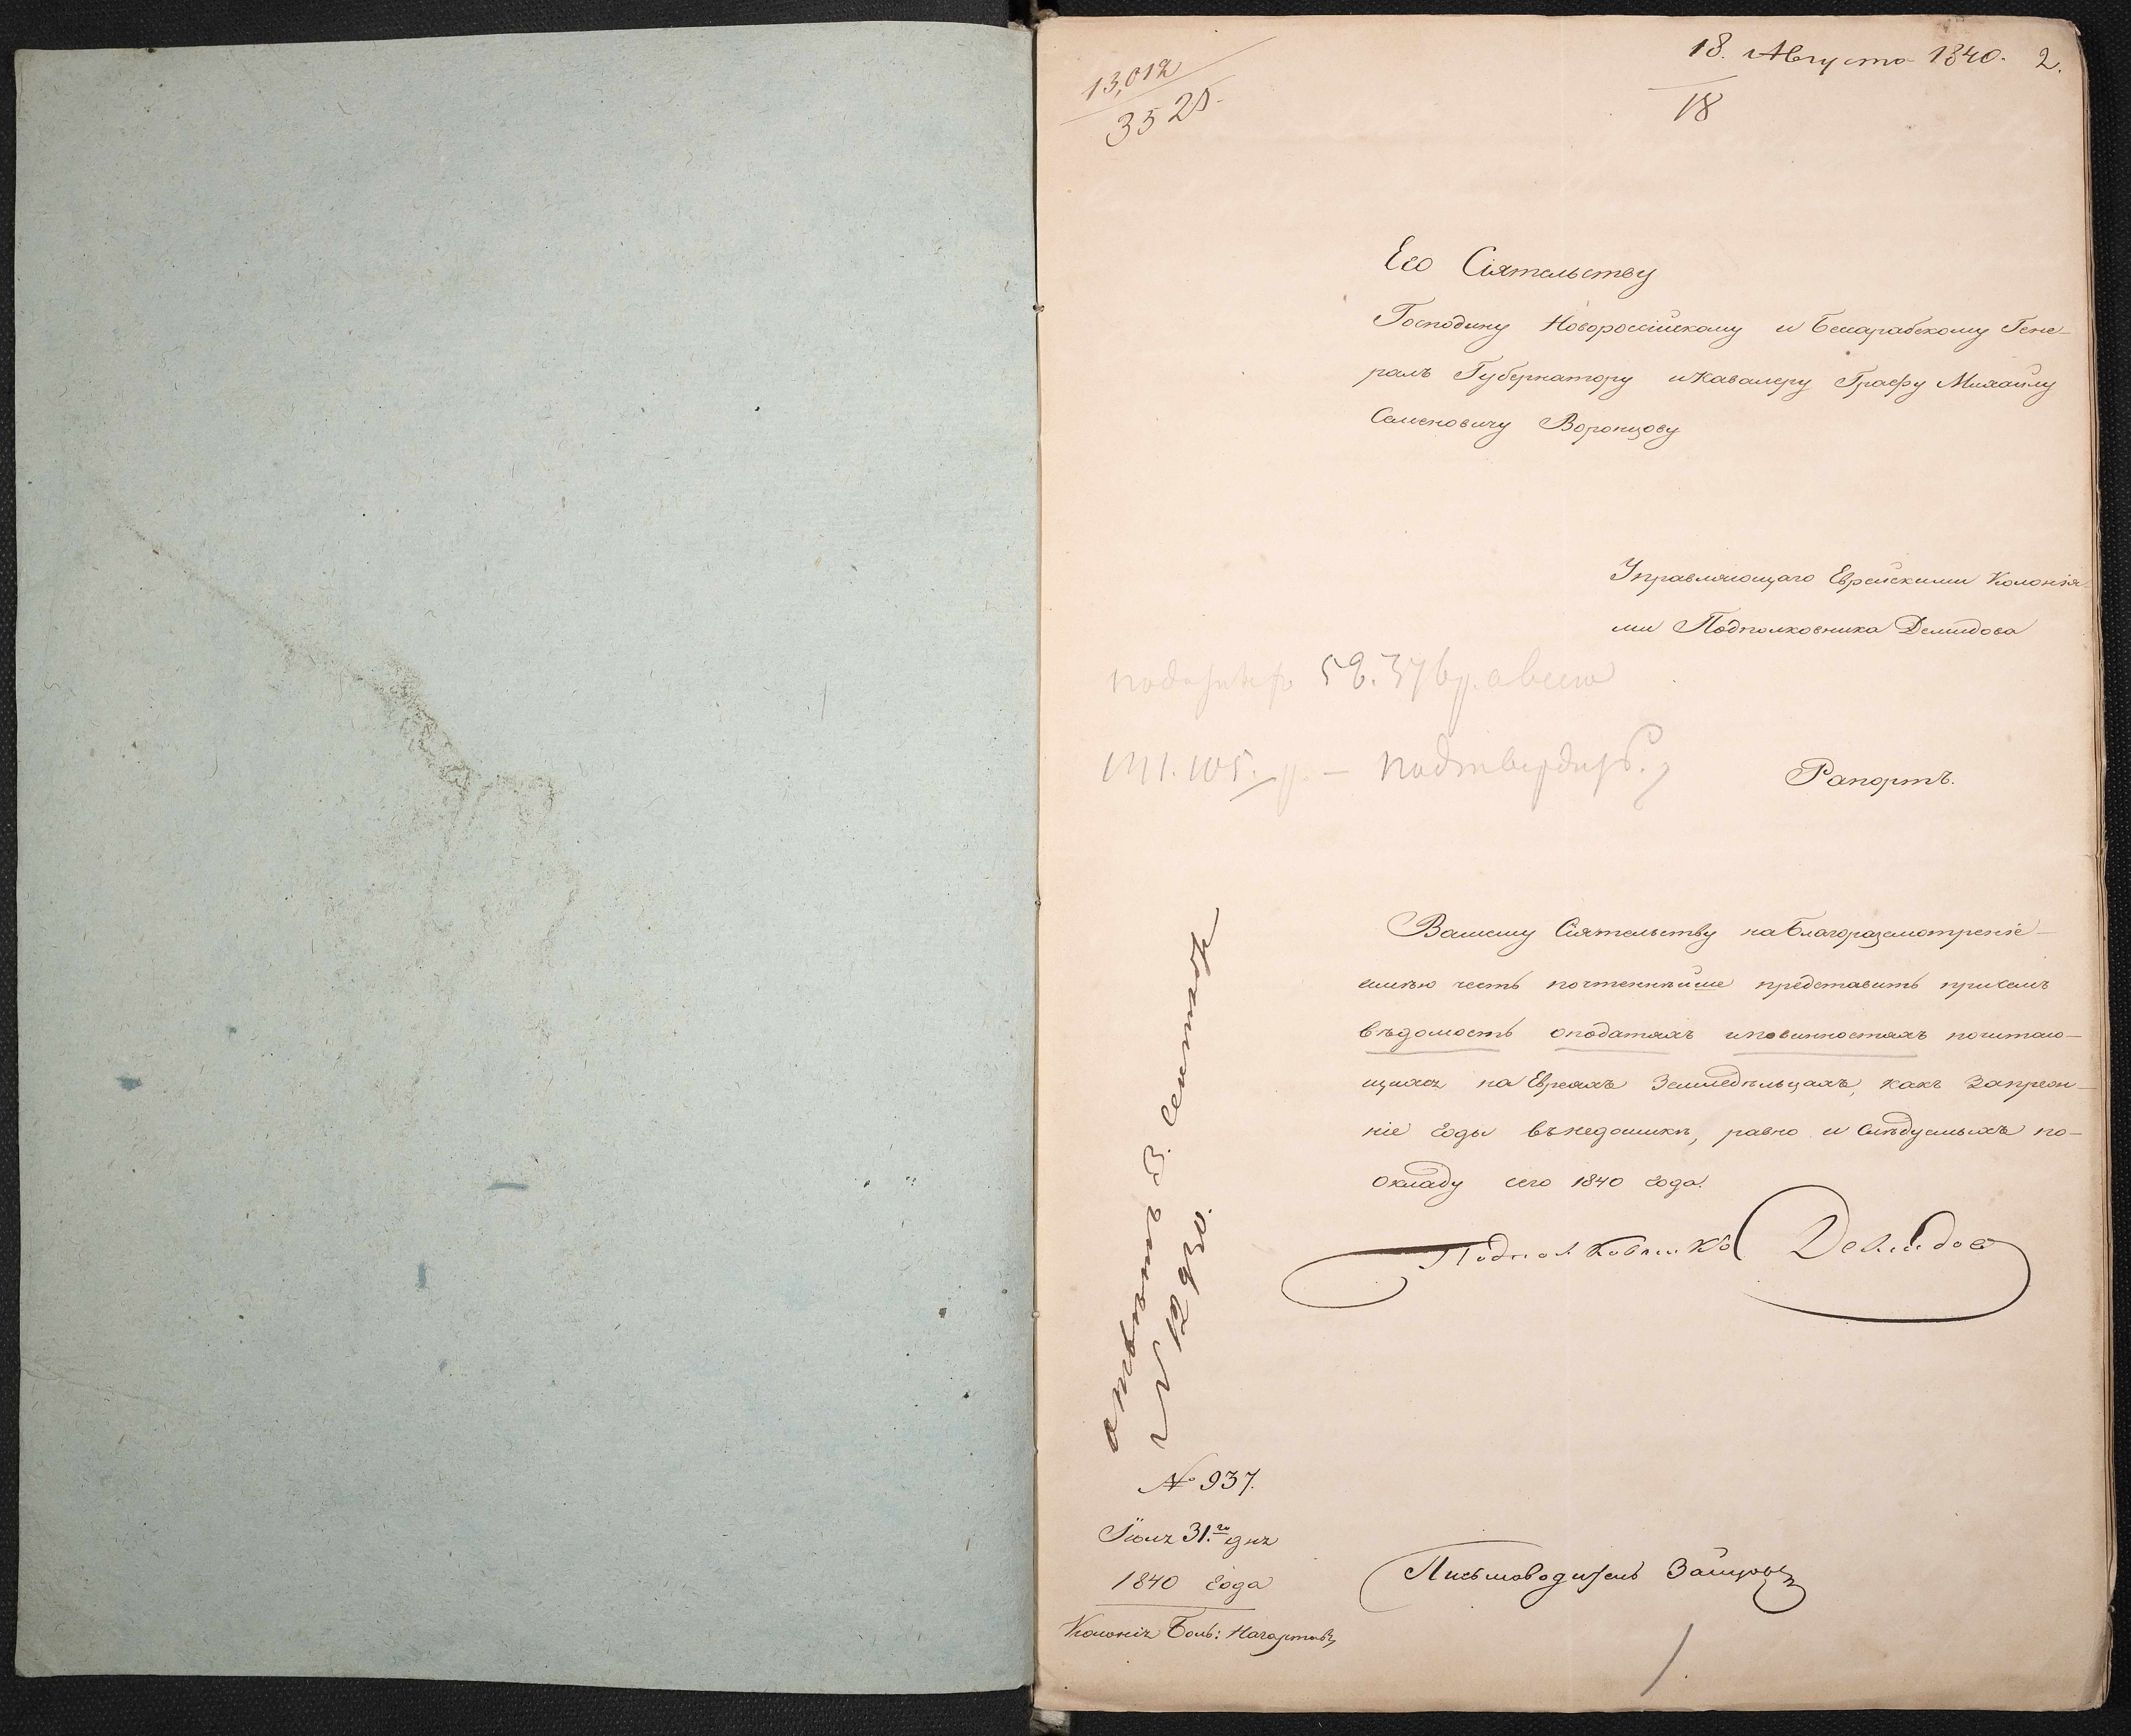 13,012
3525
18. Августа 1840. 2.
18
Его Сіятельству
Господину Новороссійскому и Бессарабскому Гене-
ралъ Губернатору и Кавалеру Графу Михаилу
Семеновичу Воронцову
Управляющаго Еврейскими Колонія
ми Подполковника Демидова
подтвердить
Рапортъ.
Вашему Сіятельству на благоразсмотреніе
имѣю честь почтеннѣйше представить присемъ
вѣдомость оподатяхъ иповинностяхъ почитаю-
щихся на Евреяхъ Земледѣльцахъ, какъ запреж-
ніе годы внедоимкѣ, равно и слѣдуемыхъ по-
окладу сего 1840 года.
Подполковникъ Демидовъ
отвѣтъ 3. Сентября
№ 12930.
№ 937.
Іюля 31.го дня
1840 года
Колонія Боль: Нагартавъ
Письмоводитель